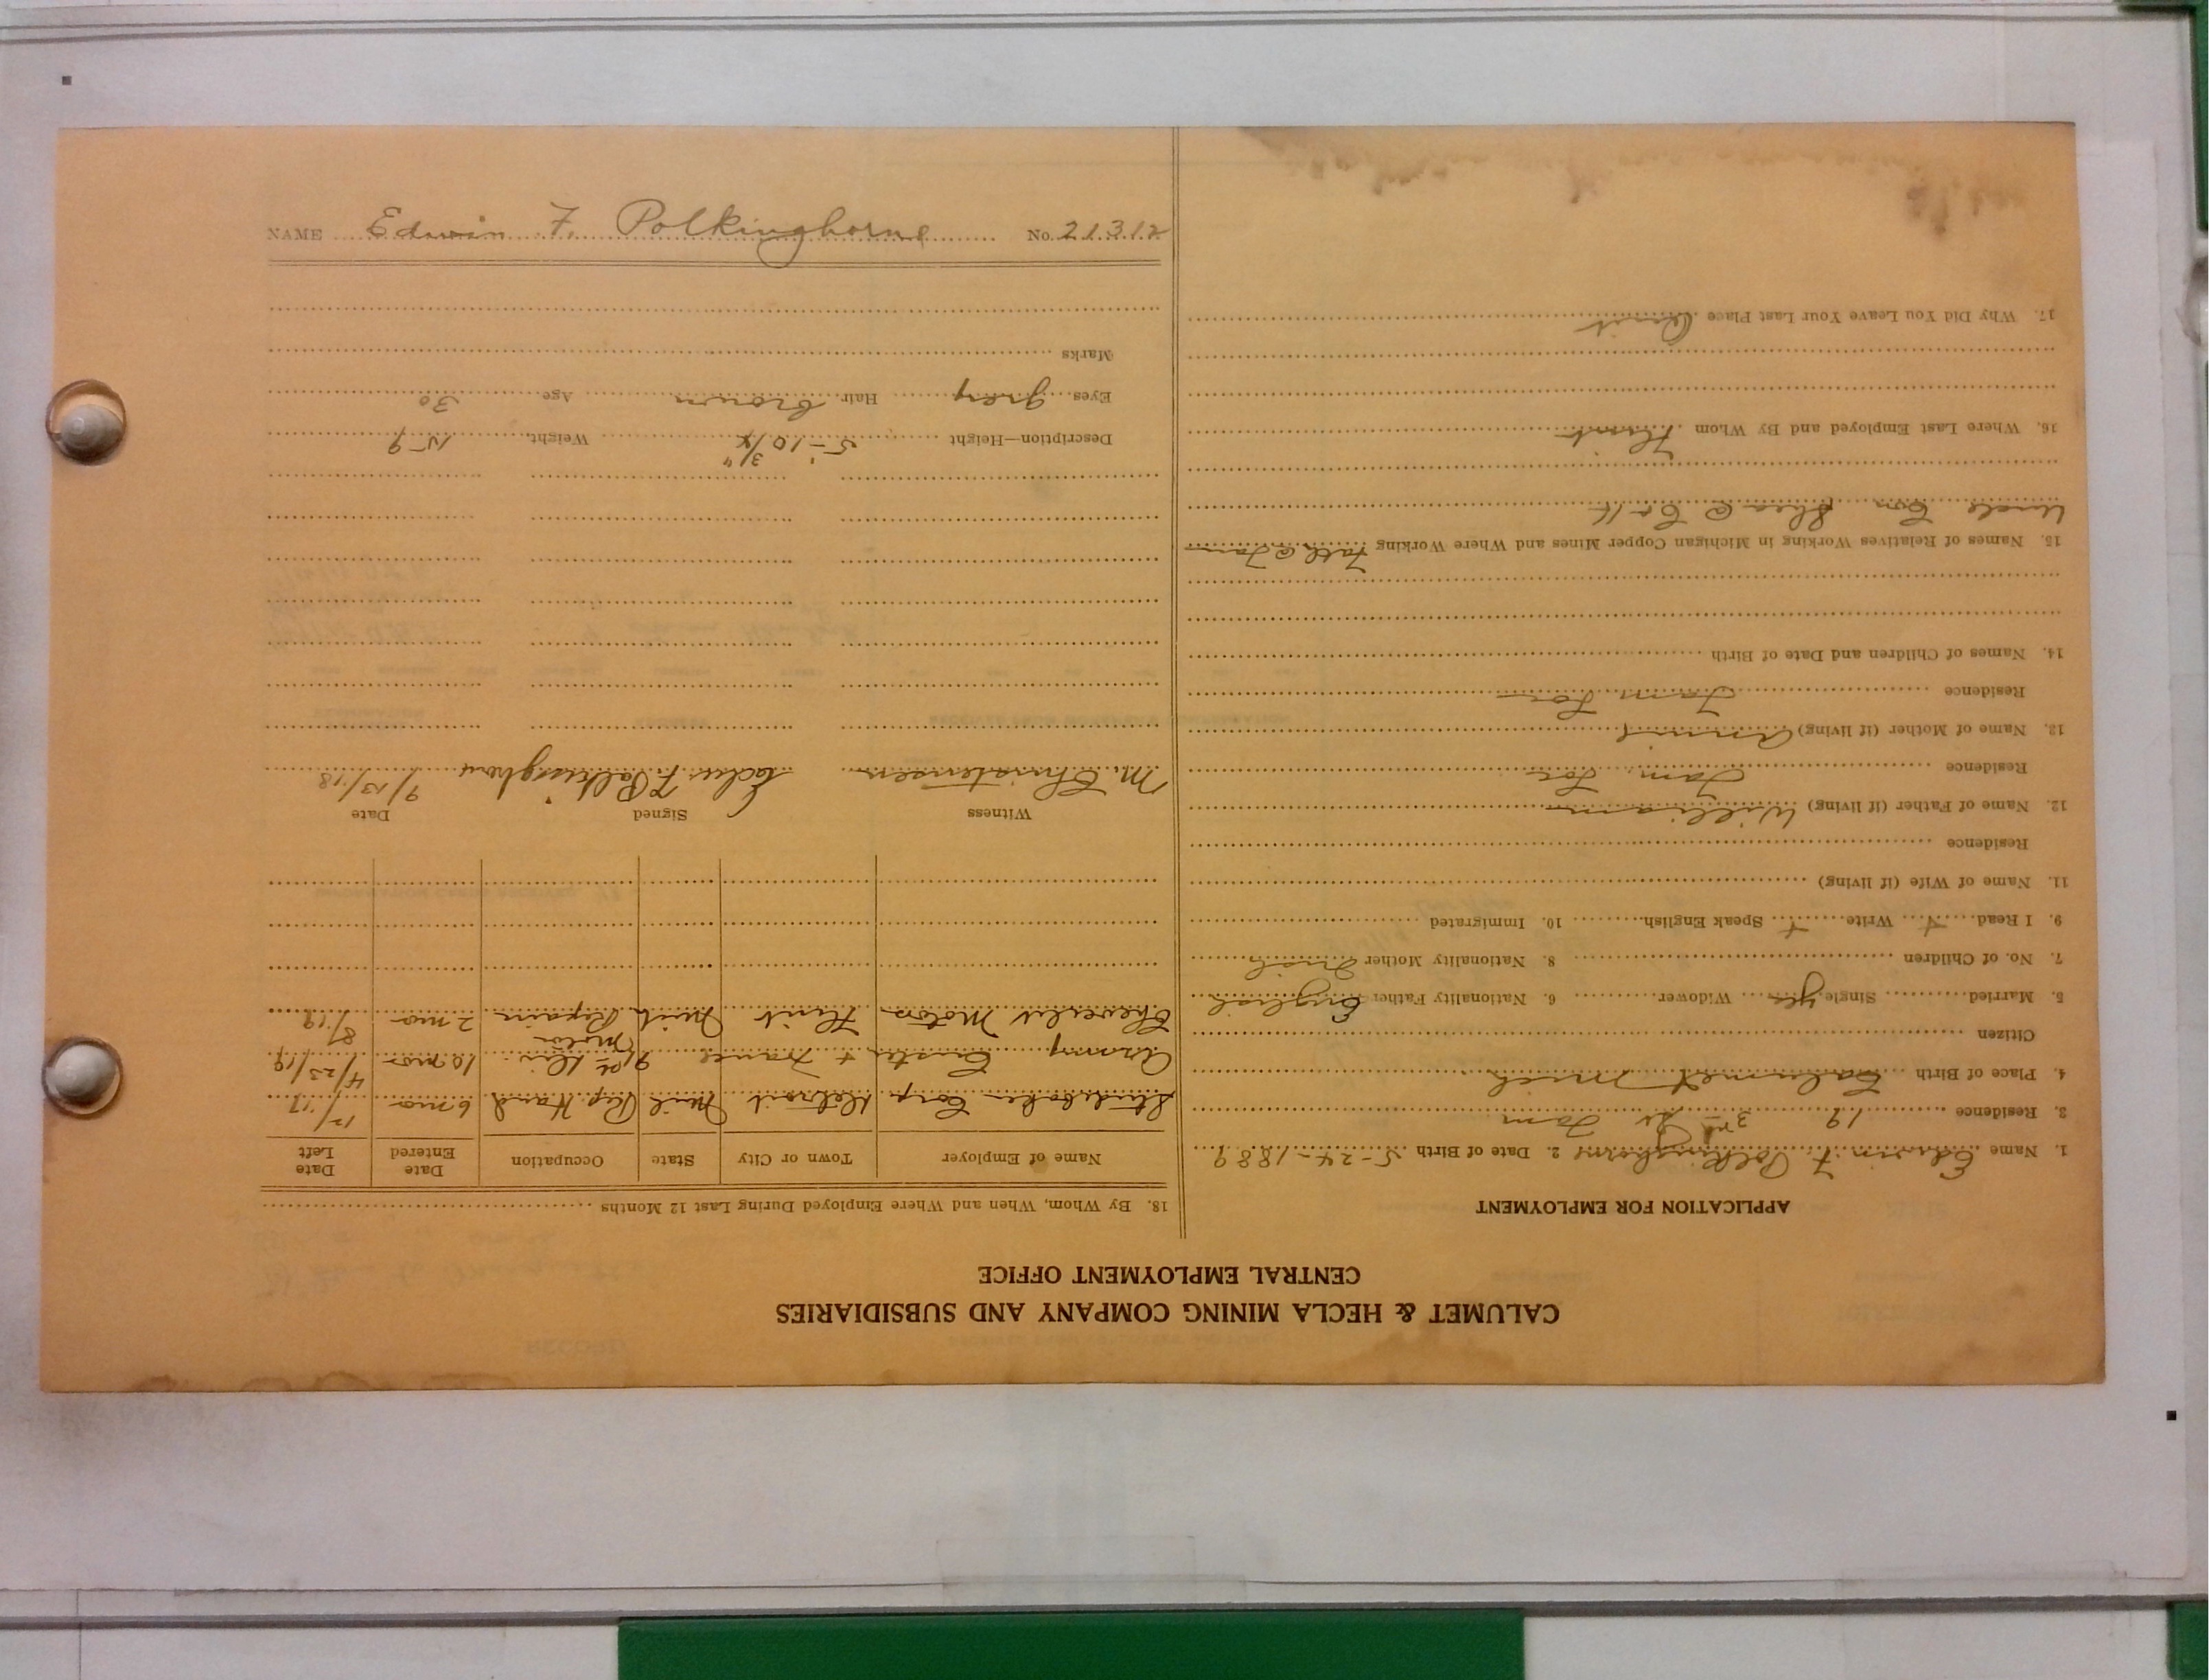 CALUMET & HECLA MINING COMPANY AND SUBSIDIARIES
CENTRAL EMPLOYMENT OFFICE
APPLICATION FOR EMPLOYMENT
1. Name Edwin F. Polkinghorne 2. Date of Birth 5-24-1889
3. Residence 19 3rd St Tam
4. Place of Birth Calumet Mich
Citizen
5. Married Single yes Widower 6. Nationality Father English
7. No. of Children 8. Nationality Mother Irish
9. I Read + Write + Speak English 10. Immigrated
11. Name of Wife (if living)
Residence
12. Name of Father (if living) William
Residence Tam. Loc
13. Name of Mother (if living) Annie
Residence Tam Loc
14. Names of Children and Date of Birth
15. Names of Relatives Working in Michigan Copper Mines and Where Working Fath @ Tam
Uncle Con Shea @ C & H
16. Where Last Employed and By Whom Flint
17. Why Did You Leave Your Last Place Quit
18. By Whom, When and Where Employed During Last 12 Months
Name of Employer Town or City State Occupation Date Entered Date Left
Studebaker Corp Detroit Mich Rep. Hand 6 mo 12/17
Army Custer + France 91st Div. Motor 10 mo 4/23/19
Chevrolet Motor Flint Mich Repair 2 mo 8/19
Witness Signed Date
M. Christensen Edwin F. Polkinghorne 9/13/18
Description—Height 5-10 3/4" Weight 159
Eyes grey Hair brown Age 30
Marks
NAME Edwin F. Polkinghorne No. 21312